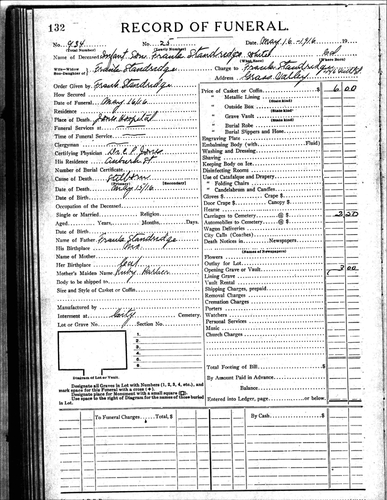 132 RECORD OF FUNERAL.
No. 434 No. 23 Date May 16 - 1916 19
(Total Number) (Yearly Number)
Name of Deceased Infant Son Frank Standridge White Cal
(What Race) (Where Born)
Wife—Widow Son—Daughter of Frank Standridge Charge to Frank Standridge
Address Grass Valley
Order Given by Frank Standridge
How Secured
Date of Funeral May 16/16
Residence
Place of Death Jones Hospital
Funeral Services at
Time of Funeral Service
Clergyman
Certifying Physician Dr. C. P. Jones
His Residence Auburn St
Number of Burial Certificate
Cause of Death Stillborn
(Primary) (Secondary)
Date of Death May 15/16
Date of Birth
Occupation of the Deceased
Single or Married Religion
Aged Years, Months, Days.
Date of Birth
Name of Father Frank Standridge
His Birthplace Mo
Name of Mother
Her Birthplace Cal
Mother's Maiden Name Ruby
Body to be shipped to
Size and Style of Casket or Coffin
Manufactured by
Interment at City Cemetery.
Lot or Grave No. Section No.
1.
2.
3.
4.
5.
6.
Diagram of Lot or Vault.
Designate all Graves in Lot with Numbers (1, 2, 3, 4, etc.), and
mark space for this Funeral with a cross (+).
Designate place for Monument with a small square (□).
Use space to the right of Diagram for the names of those buried
in Lot.
Price of Casket or Coffin $ 6 00
" Metallic Lining
(State Kind)
" Outside Box
(State Kind)
" Grave Vault
(State Kind)
" Burial Robe
(State Kind)
" Burial Slippers and Hose
Engraving Plate
Embalming Body (with Fluid)
Washing and Dressing
Shaving
Keeping Body on Ice
Disinfecting Rooms
Use of Catafalque and Drapery
" Folding Chairs
" Candelabrum and Candles
Gloves $ Crape $
Door Crape $ Canopy $
Hearse
Carriages to Cemetery @ $ 2 50
Automobiles to Cemetery @ $
Wagon Deliveries
City Calls (Coaches)
Death Notices in Newspapers
(Names of Newspapers)
Flowers
Outlay for Lot
Opening Grave or Vault 3 00
Lining Grave
Vault Rental
Shipping Charges, prepaid
Removal Charges
Cremation Charges
Porters
Watchers
Personal Services
Music
Church Charges
Total Footing of Bill $
By Amount Paid in Advance
Balance
Entered into Ledger, page or below. $
To Funeral Charges Total, $ By Cash $